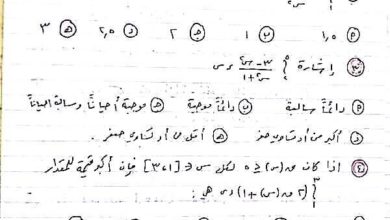 P ١,٥ ن ١ ج ٢ د ٢,٥ هـ ٣
٣ إشارة ∫ (٣ - س) / (س٢ + ١) ءس
P دائماً سالبة ب دائماً موجبة ج موجبة أحياناً وسالبة أحياناً
د أكبر من أو تساوي صفر هـ أقل من أو تساوي صفر .
٤ اذا كان ق(س) ≤ ٥ لكل س ∈ [١،٣] فإن أكبر قيمة للمقدار
∫ (٢ ق(س) + ١) ءس هي :